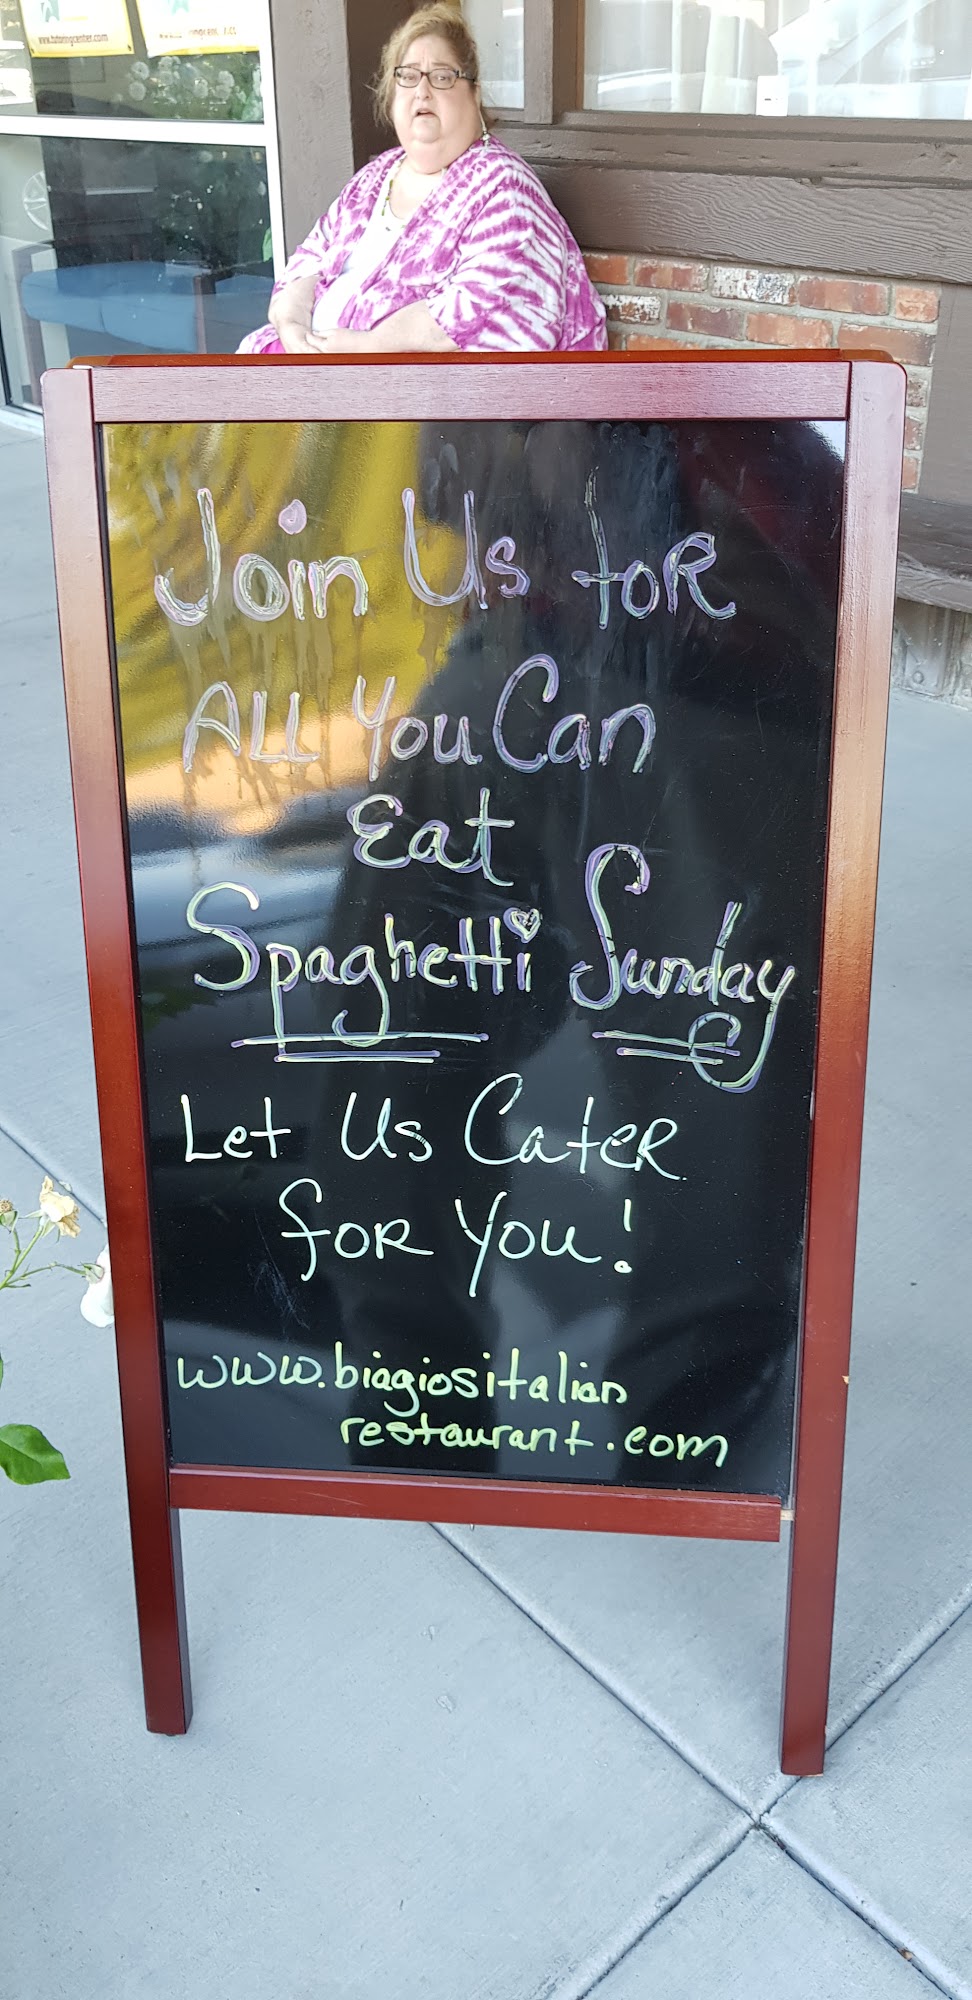 www.tutoringcenter.com
Join Us for
ALL You Can
Eat
Spaghetti Sunday
Let Us Cater
for You!
www.biagiositalian
restaurant.com